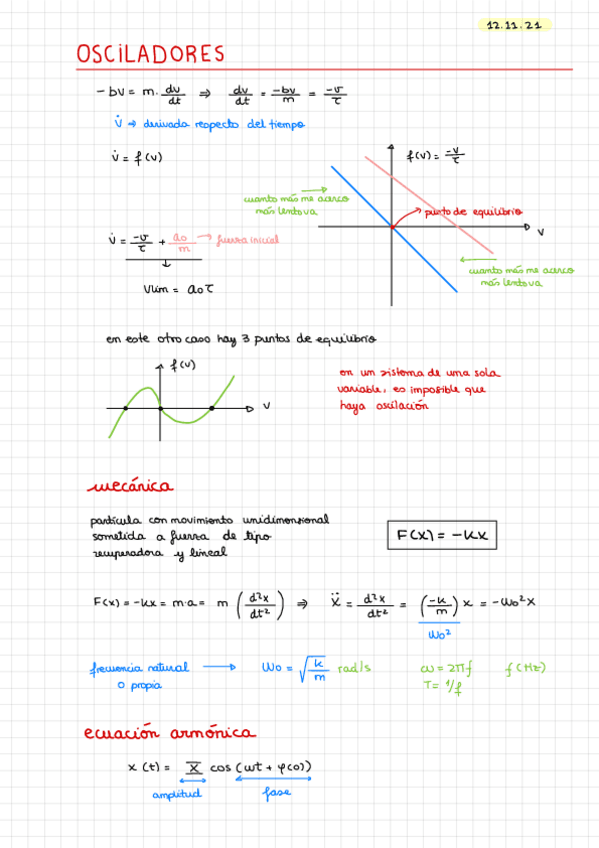 12.11.21
OSCILADORES
-bv = m · dv/dt ⇒ dv/dt = -bv/m = -v/τ
v̇ → derivada respecto del tiempo
v̇ = f(v)
f(v) = -v/τ
cuanto más me acerco
más lento va
punto de equilibrio
v
v̇ = -v/τ + a₀/m → fuerza inicial
cuanto más me acerco
más lento va
vlím = a₀τ
en este otro caso hay 3 puntos de equilibrio
f(v)
v
en un sistema de una sola
variable, es imposible que
haya oscilación
mecánica
partícula con movimiento unidimensional
sometida a fuerza de tipo
recuperadora y lineal
F(x) = -kx
F(x) = -kx = m·a = m (d²x/dt²) ⇒ ẍ = d²x/dt² = (-k/m) x = -ω₀²x
ω₀²
frecuencia natural
o propia
→ ω₀ = √(k/m) rad/s
ω = 2πf f(Hz)
T = 1/f
ecuación armónica
x(t) = X̅ cos(ωt + φ(0))
amplitud fase